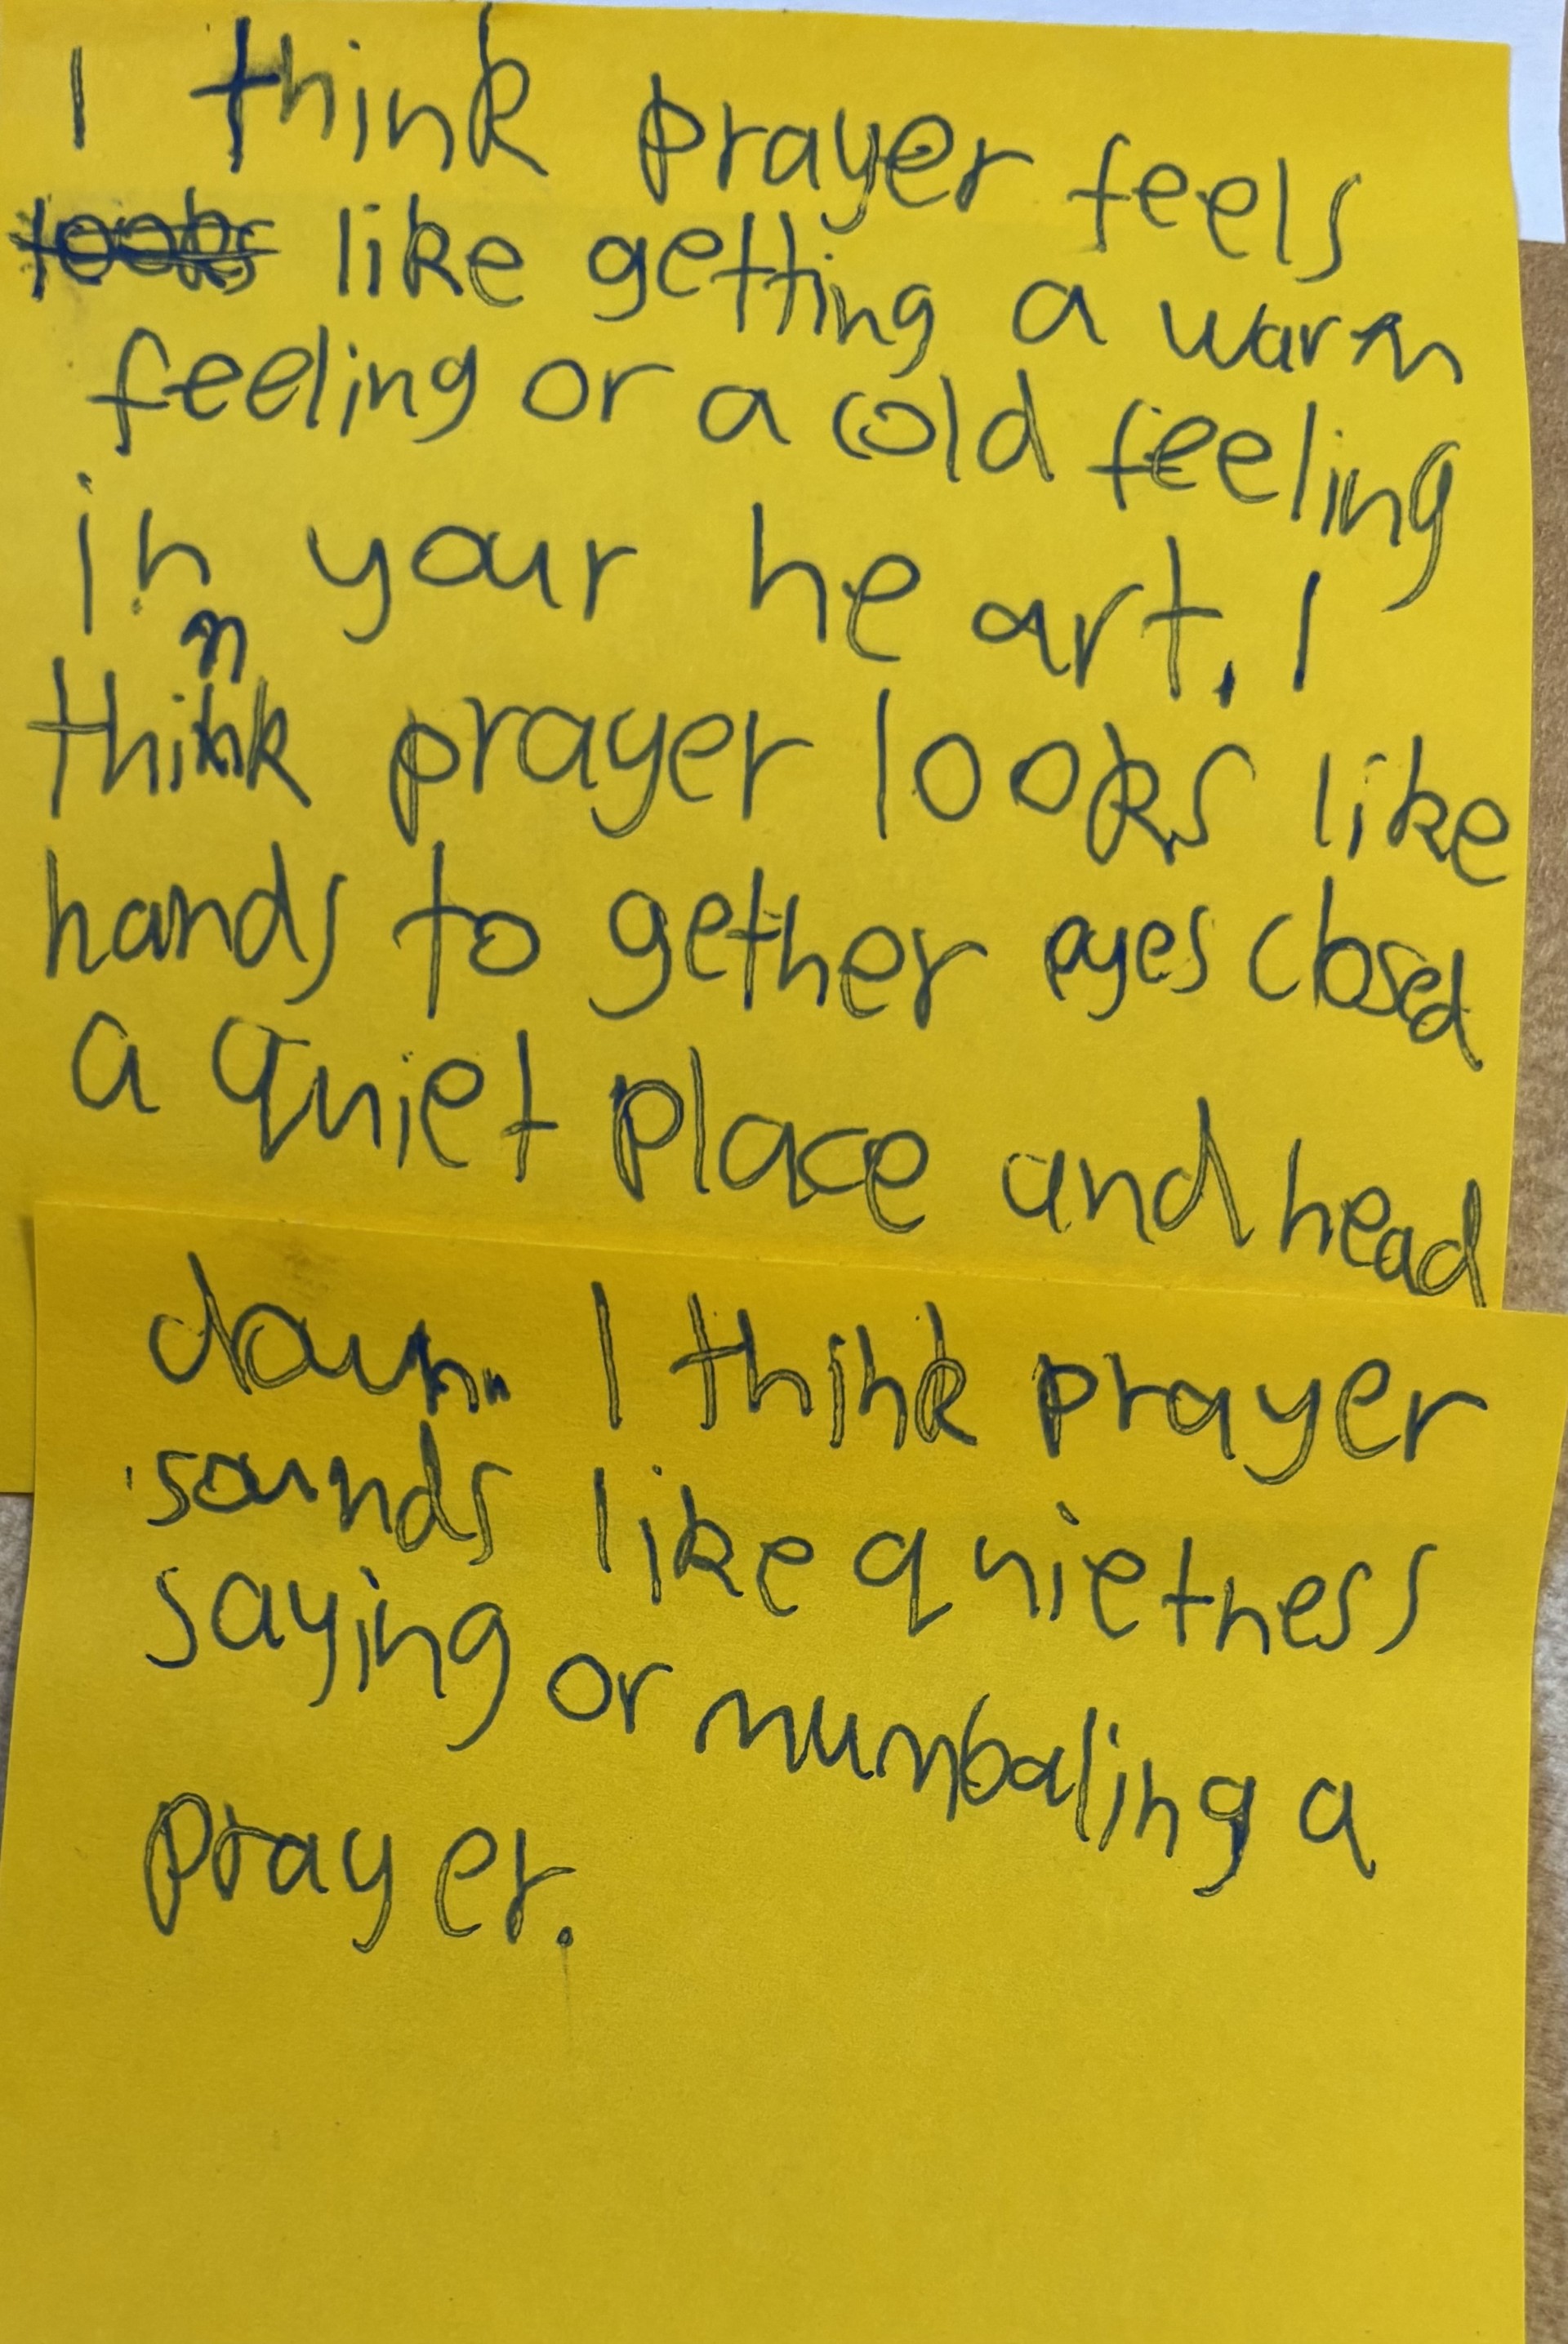 I think prayer feels
looks like getting a warm
feeling or a cold feeling
in your heart. I
think prayer looks like
hands to gether eyes closed
a quiet place and head
down. I think prayer
sounds like quietness
saying or mumbaling a
prayer.